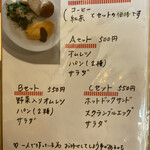 コーヒー
紅茶 とセットの価格です
Aセット 500円
オムレツ
パン(2種)
サラダ
Bセット 550円
野菜入りオムレツ
パン(2種)
サラダ
Cセット 550円
ホットドッグサンド
スクランブルエッグ
サラダ